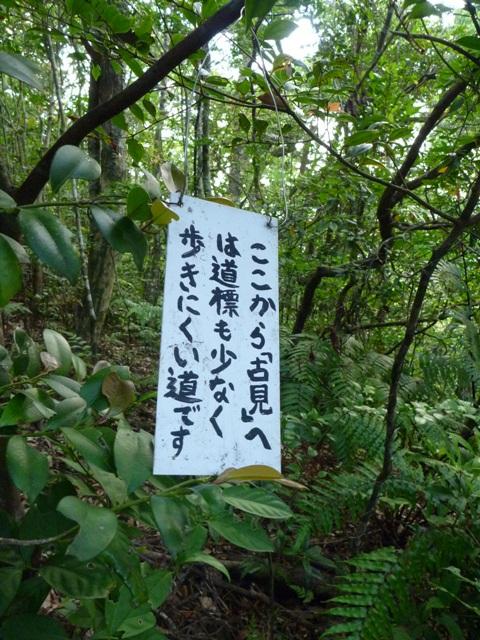 ここから「古見」へ
は道標も少なく
歩きにくい道です